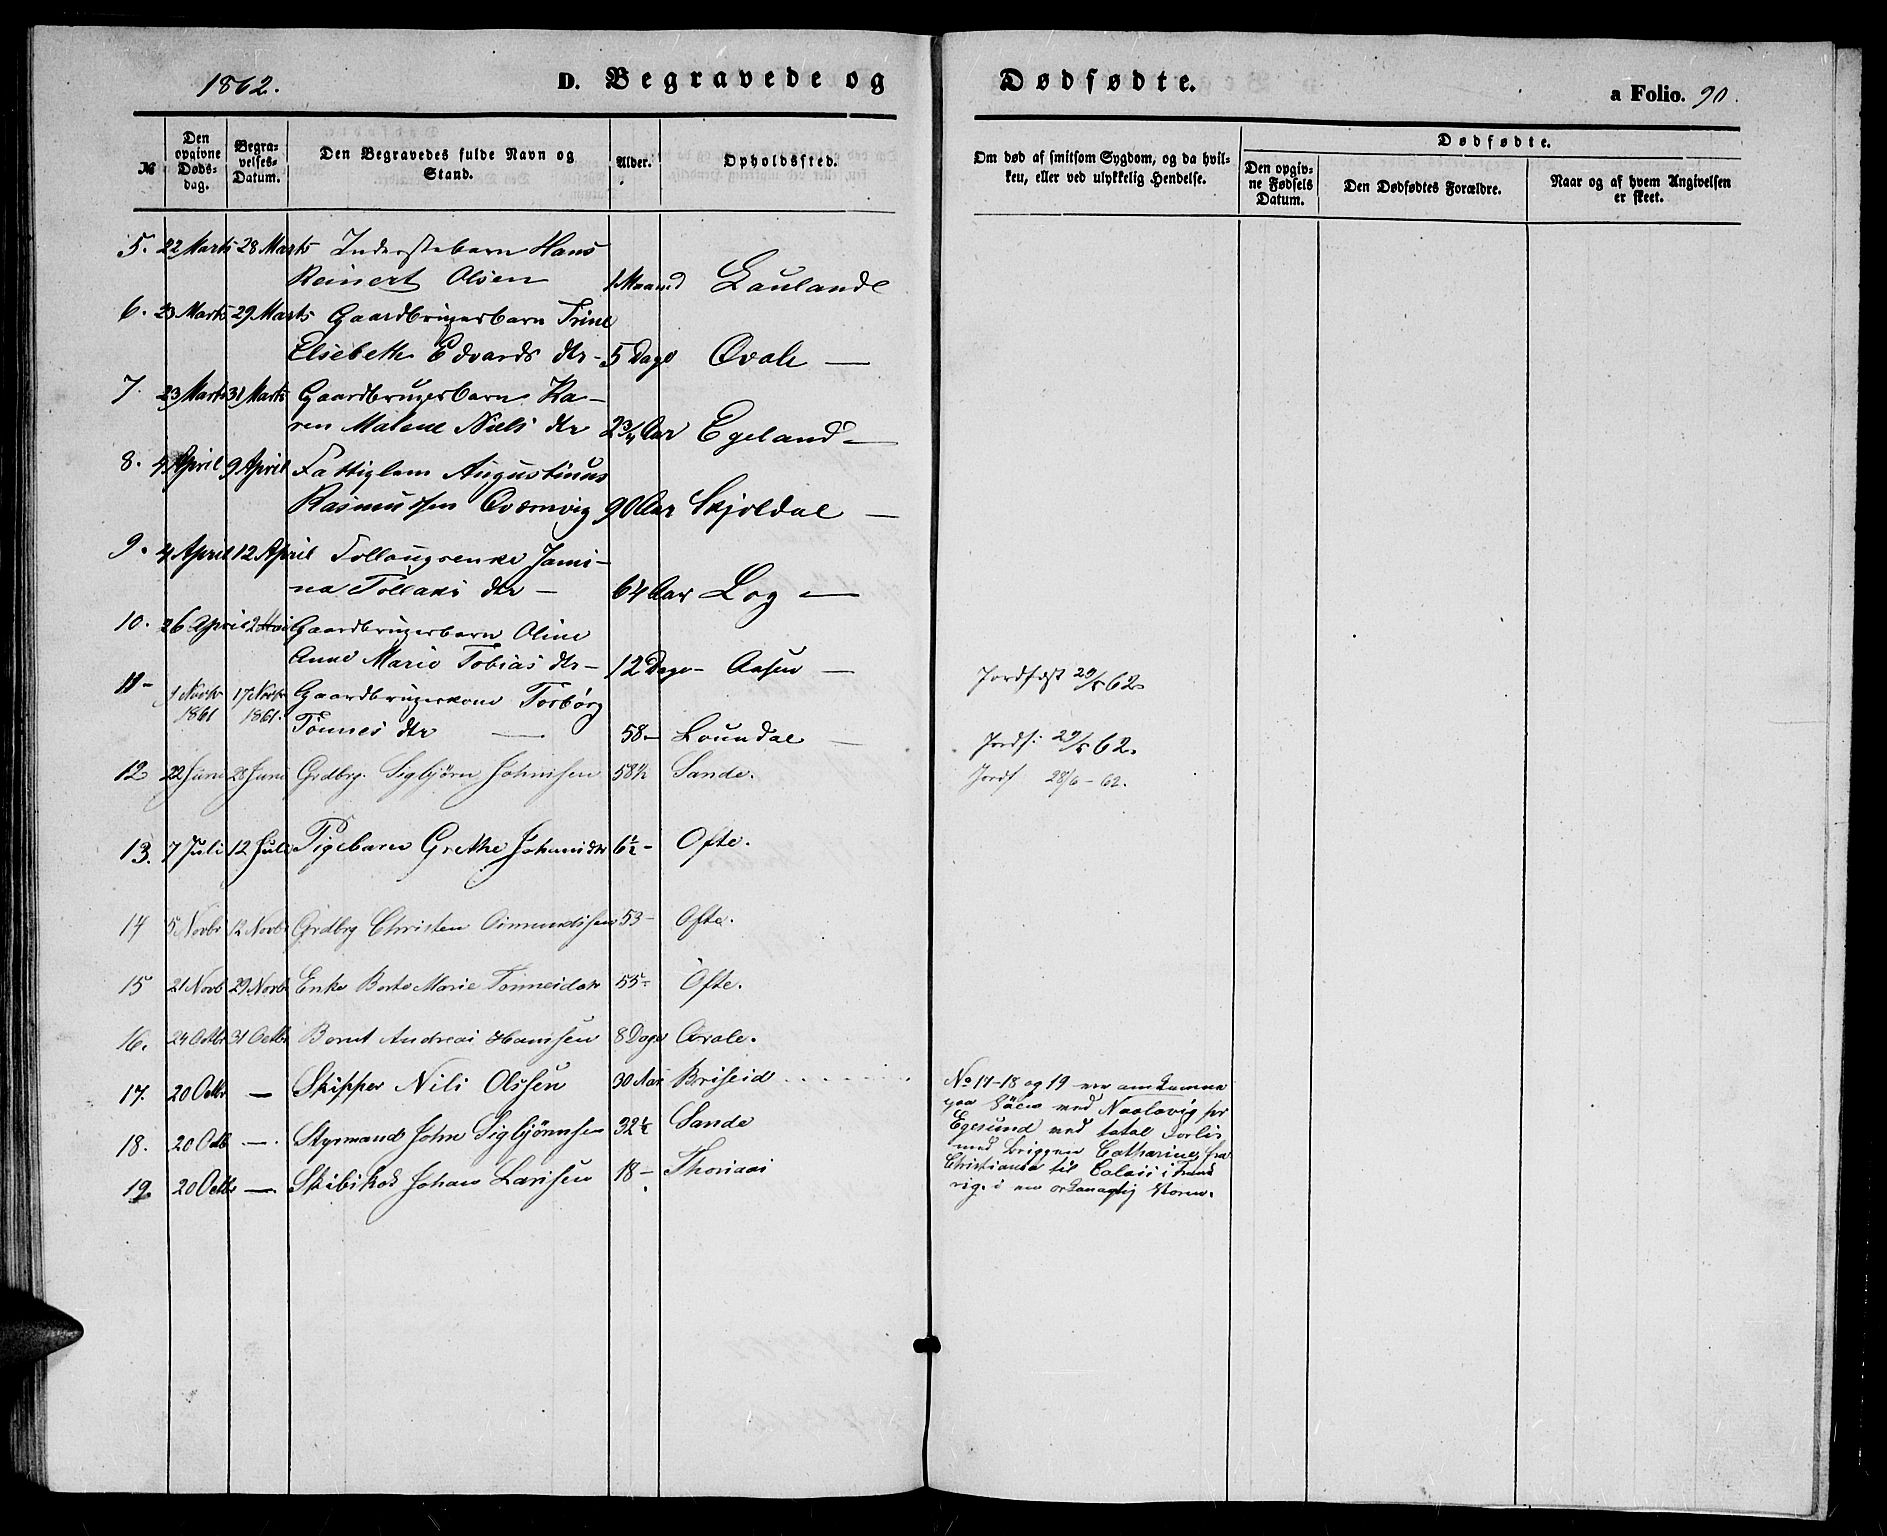 1862.
D. Begravede og Dødfødte.
a Folio. 90.
№
Den opgivne Døds-dag.
Begra-velses-Datum.
Den Begravedes fulde Navn og Stand.
Alder.
Opholdssted.
Om død af smitsom Sygdom, og da hvil-ken, eller ved ulykkelig Hendelse.
Dødfødte.
Den opgiv-ne Fødsels Datum.
Den Dødfødtes Forældre.
Naar og af hvem Angivelsen er skeet.
5. 22 Marts 28 Marts Inderstebarn Hans
Reinert Olsen 1 Maaned Laulande
6. 23 Marts 29 Marts Gaardbrugerbarn Trine
Elisebeth Edvards dtr - 5 Dage Qvale —
7. 23 Marts 31 Marts Gaardbrugerbarn Ka-
ren Malene Niels dtr 2¾ Aar Egeland —
8. 4 April 9 April Fattiglem Augustinus
Rasmussen Qvernvig 90 Aar Skjoldal —
9. 4 April 12 April Follougsenke Jami-
na Tollaks dtr — 64 Aar Log —
10. 26 April 2 Mai Gaardbrugerbarn Oline
Anne Marie Tobias dtr — 12 Dage - Aasen — Jordfæst 29/5 62
11 - 1 Novbr 1861 17 Novbr 1861. Gaardbrugerkone Torbørg
Tønnes dtr — 58 - Loundal — Jordf: 29/5 62.
12 22 Juni 28 Juni Grdbrg. Sigbjørn Johnssen 58½ Sande. Jordf 28/6 - 62.
13. 7 Juli 12 Juli Pigebarn Grethe Johansdtr 6½ - Ofte.
14 5 Novbr 12 Novbr Grdbrg Christen Osmundssen 53 - Ofte.
15 21 Novb 29 Novbr Enke Berte Marie Tønnesdatr 55 - Ofte.
16. 24 Octbr 31 Octbr Bernt Andreas Hanssen 8 Dage Qvale.
17. 20 Octbr — Skipper Nils Olssen 30 Aar Briseid
18. 20 Octb — Styrmand John Sigbjørnsen 32½ Sande
19. 20 Octbr — Skibskok Johan Larssen 18 - Thorsaas
No 17-18 og 19 ere omkomne
paa Søen ved Naalavig for
Egersund ved total Forlis
med Briggen Catharine, fra
Christiania til Calais i Frank
rig, i en orkanagtig Storm.